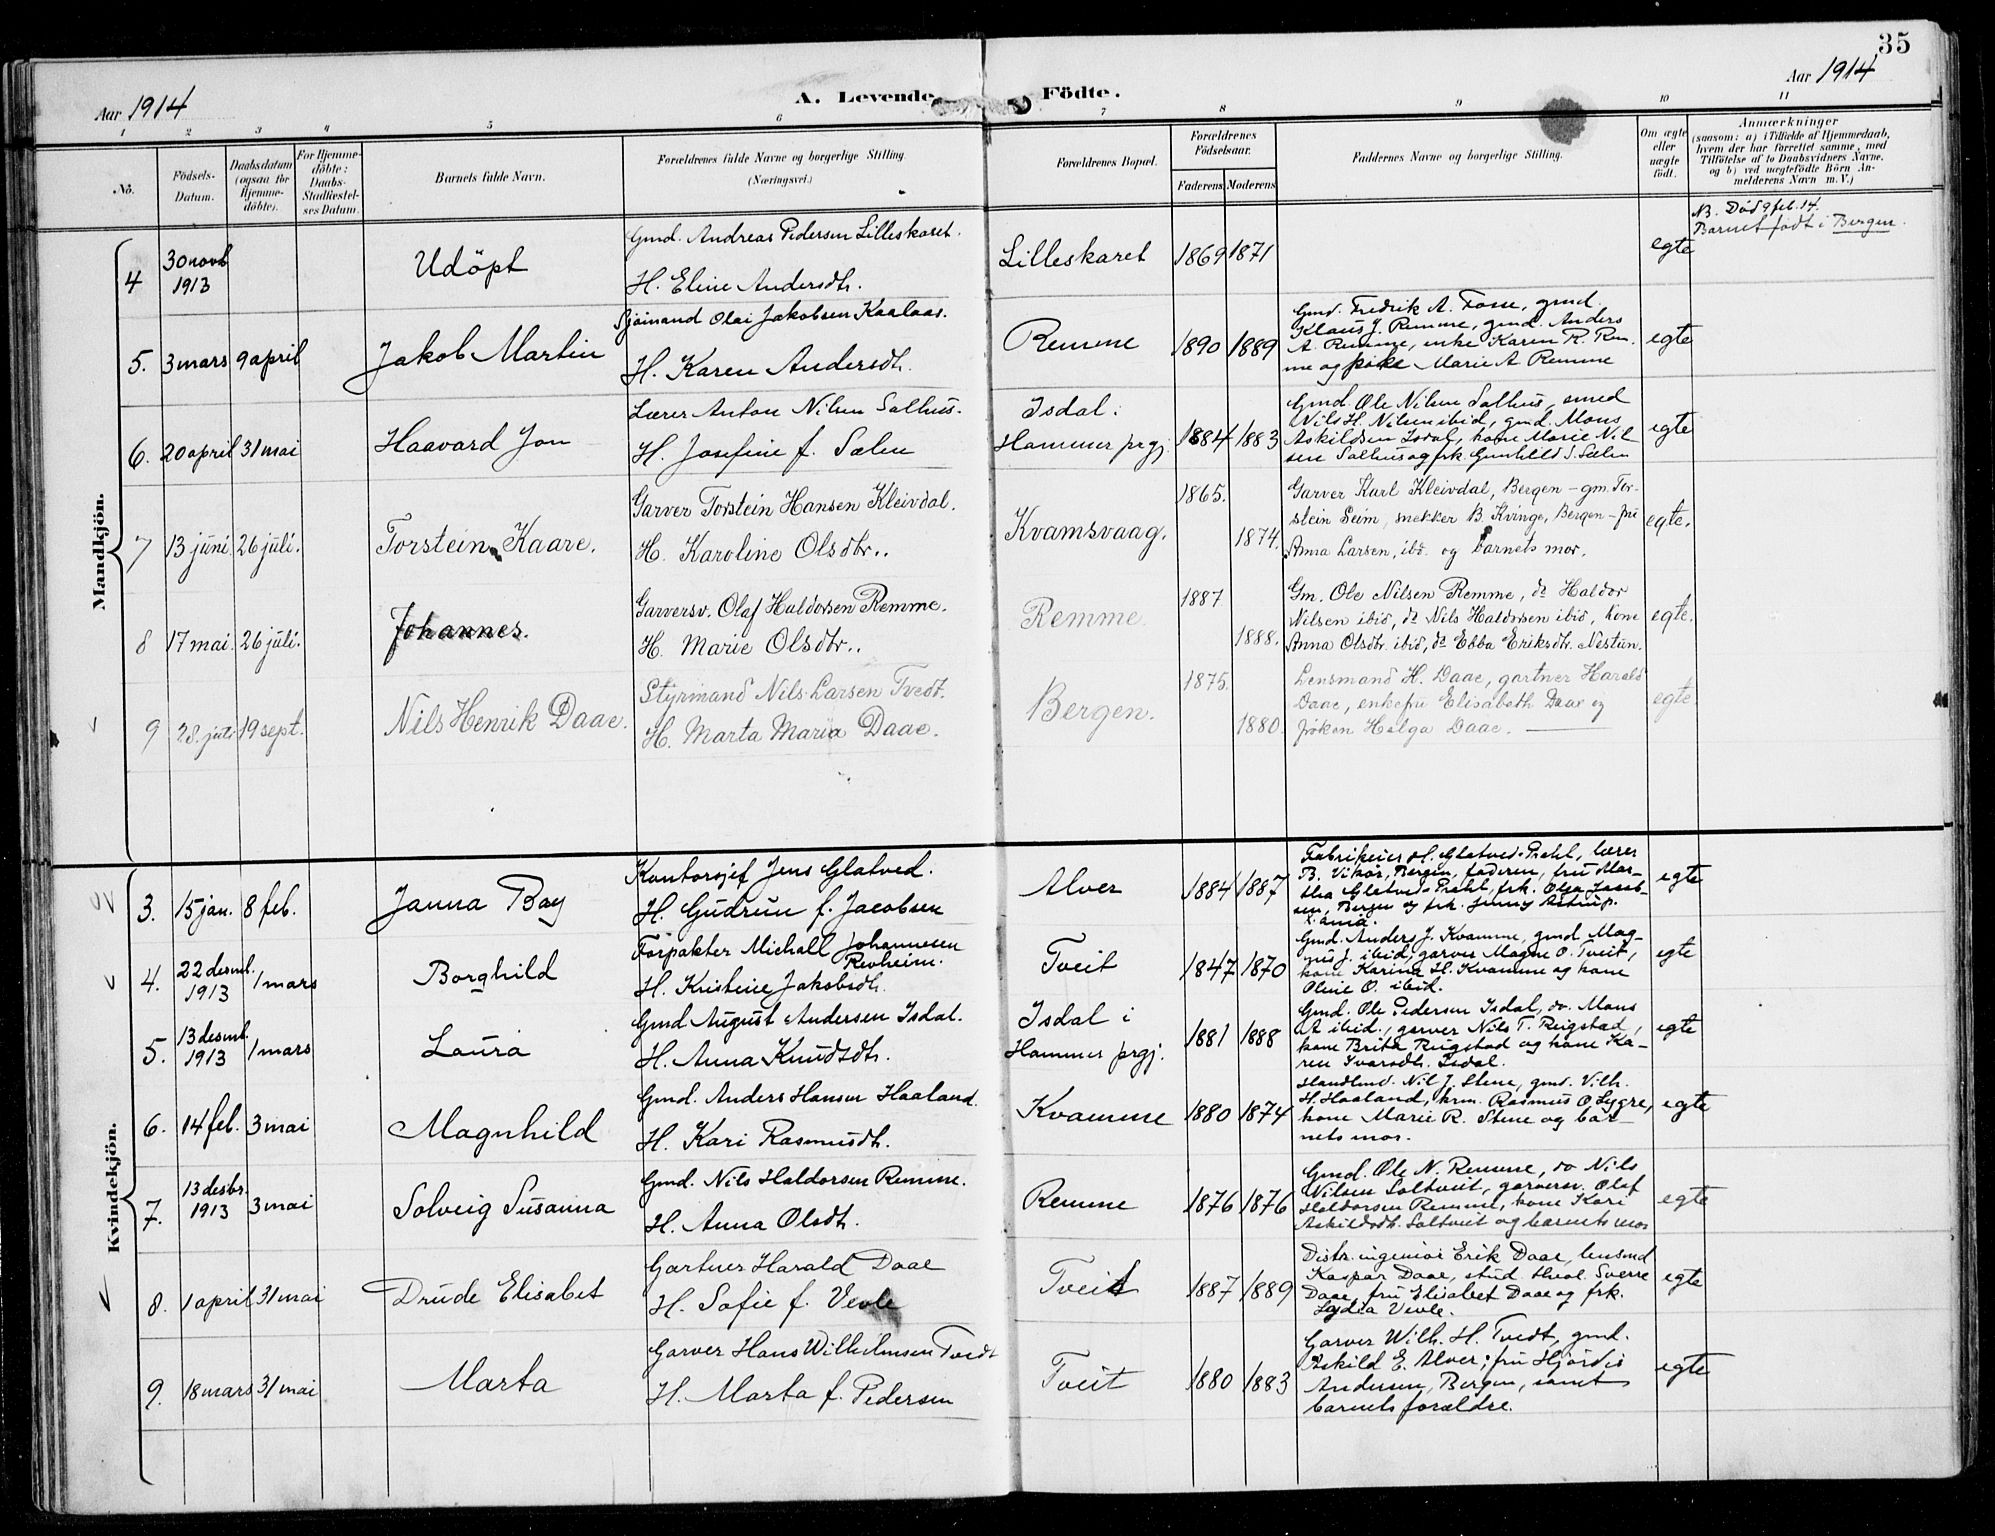 35
Aar 1914
A. Levende
Födte.
Aar 1914
1 2 3 4 5 6 7 8 9 10 11
No.
Födsels-
Datum.
Daabsdatum
(ogsaa for
Hjemme-
döbte).
For Hjemme-
döbte:
Daabs-
Stadfæstel-
ses Datum.
Barnets fulde Navn.
Forældrenes fulde Navne og borgerlige Stilling.
(Næringsvei.)
Forældrenes Bopæl.
Forældrenes
Födselsaar.
Faderens Moderens
Faddernes Navne og borgerlige Stilling.
Om ægte
eller
uægte
födt.
Anmærkninger
(saasom: a) i Tilfælde af Hjemmedaab,
hvem der har forrettet samme, med
Tilföielse af to Daabsvidners Navne,
og b) ved uægtefödte Börn An-
melderens Navn m. V.)
Mandkjön.
4
30 novb
1913
Udöpt
Gmd. Andreas Pedersen Lilleskaret.
H. Eline Andersdtr.
Lilleskaret
1869 1871
egte
NB. Död 9 feb. 14.
Barnet født i Bergen.
5. 3 mars 9 april
Jakob Martin
Sjömand Olai Jakobsen Kaalaas.
H. Karen Andersdtr.
Remme
1890 1889
Gmd. Fredrik A. Fosse, gmd.
Klaus J. Remme, gmd. Anders
A. Remme, enke Karen R. Rem-
me og pike Marie A Remme
egte
6. 20 april 31 mai
Haavard Jon
Lærer Anton Nilsen Salhus.
H. Josefine f. Sælen
Isdal i
Hammer prgj.
1884 1883
Gmd. Ole Nilsen Salhus, smed
Nils H. Nilsen ibid, gmd. Mons
Askildsen Isdal, kone Marie Nil
sen Salhus og frk. Gunhild S. Sælen
egte
7 13 juni 26 juli.
Torstein Kaare.
Garver Torstein Hansen Kleivdal.
H. Karoline Olsdtr..
Kvamsvaag.
1865.
1874.
Garver Karl Kleivdal, Bergen – gm. Tor-
stein Seim, snekker B. Kvinge, Bergen – fru
Anna Larsen, ibd. og barnets mor.
egte.
8 17 mai. 26 juli.
Johannes.
Garversv. Olaf Haldorsen Remme.
H. Marie Olsdtr..
Remme.
1887
1888.
Gm. Ole Nilsen Remme, do Haldor
Nilsen ibid, do Nils Haldorsen ibid, kone
Anna Olsdtr. ibid, do Ebba Eriksdtr. Nestun.
egte.
9 28. juli 19 sept.
Nils Henrik Daae.
Styrmand Nils Larsen Tvedt.
H. Marta Maria Daae.
Bergen.
1875.
1880.
Lensmand H. Daae, gartner Harald
Daae, enkefru Elisabeth Daae og
fröken Helga Daae.
egte.
Kvindekjön.
3. 15 jan. 8 feb.
Janna Bay
Kontorsjef Jens Glatved.
H. Gudrun f. Jacobsen
Alver
1884 1887
Fabrikeier H. Glatved-Prahl, lærer
B. Vikör, Bergen, faderen, fru Mar-
tha Glatved-Prahl, frk. Olga Jacob-
sen, Bergen og frk. Jenny Astrup.
egte
4. 22 desmb.
1913
1 mars
Borghild
Forpakter Michall Johannesen
Revheim.
H. Kristine Jakobsdtr.
Tveit
1847 1870
Gmd. Anders J. Kvamme, gmd Mag-
nus J. ibid, garver Magne O. Tveit,
kone Karina H. Kvamme og kone
Oline O. ibid.
egte
5. 13 desmb.
1913
1 mars
Laura
Gmd August Andersen Isdal.
H. Anna Knudsdtr.
Isdal i
Hammer prgj.
1881 1888
Gmd. Ole Pedersen Isdal, do. Mons
A ibid., garver Nils T. Reigstad,
kone Brita Reigstad og kone Ka-
ren Ivarsdtr. Isdal.
egte
6. 14 feb. 3 mai
Magnhild
Gmd. Anders Hansen Haaland.
H. Kari Rasmusdtr.
Kvamme
1880 1874
Handlmd. Nil J. Stene, gmd. Vilh.
H. Haaland, krm. Rasmus O Lygre,
kone Marie R. Stene og bar-
nets mor.
egte
7. 13 desbr.
1913
3 mai
Solveig Susanna
Gmd. Nils Haldorsen Remme.
H. Anna Olsdtr.
Remme
1876 1876
Gmd. Ole N. Remme, do Nils
Nilsen Soltveit, garversv. Olaf
Haldorsen Remme, kone Kari
Askildsdtr. Soltveit og barnets mor
egte
8. 1 april 31 mai
Drude Elisabet
Gartner Harald Daae
H. Sofie f. Vevle
Tveit
1887 1889
Distr. ingeniør Erik Daae, lensmd
Kaspar Daae, stud. theol. Sverre
Daae, fru Elisabet Daae og frk.
Lydia Vevle.
egte
9. 18 mars 31 mai
Marta
Garver Hans Wilhelmsen Tvedt
H. Marta f. Pedersen
Tveit
1880 1883
Garver Wilh. H. Tvedt, gmd.
Askild E. Alver, fru Hjördis
Andersen, Bergen, samt
barnets forældre.
egte